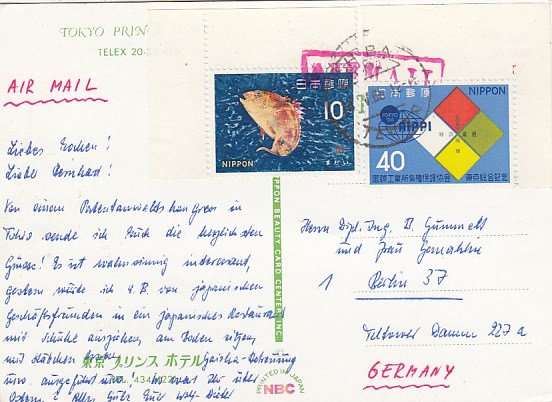 TOKYO PRIN
TELEX 20-
AIR MAIL
AIR MAIL
日本郵便
10
NIPPON
日本郵便
NIPPON
TOKYO
AIPPI
40
国際工業所有権保護協会 東京総会記念
Liebes
Lieber Reinhard!
Von einem Patentanwaltskongress in
Tokio sende ich Euch die herzlichsten
Grüsse! Es ist wahnsinnig interessant,
gestern wurde ich z.B. von japanischen
Geschäftsfreunden in ein japanisches Restaurant
mit Schuhe ausziehen, am Boden sitzen,
und Mädchen Geisha-Betreuung
usw. ausgeführt
Ostern! Alles Gute Euer Wolf-Dieter
東京プリンスホテル
434-
NIPPON BEAUTY CARD CENTER, INC.
PRINTED IN JAPAN
NBC
Herrn Dipl. Ing. H.
und Frau Gemahlin
1 Berlin 37
Teltower Damm 227a
GERMANY